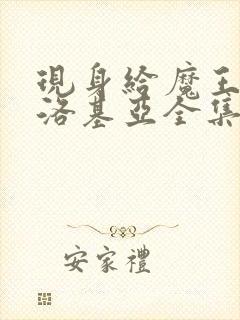 現身給魔王
洛基亞全集
安家禮